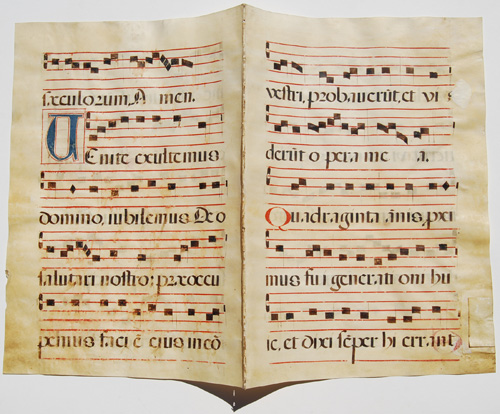 sæculorum, A men.
UEnite exultemus
domino, iubilemus De o
salutari nostro: præoccu
pemus faci ē eius in cō
vestri, probaverūt, et vi s
derūt o pera me a.
Quadraginta, ānis, pxi
mus fui generati oni hu
ic, et dixi sēper hi errant